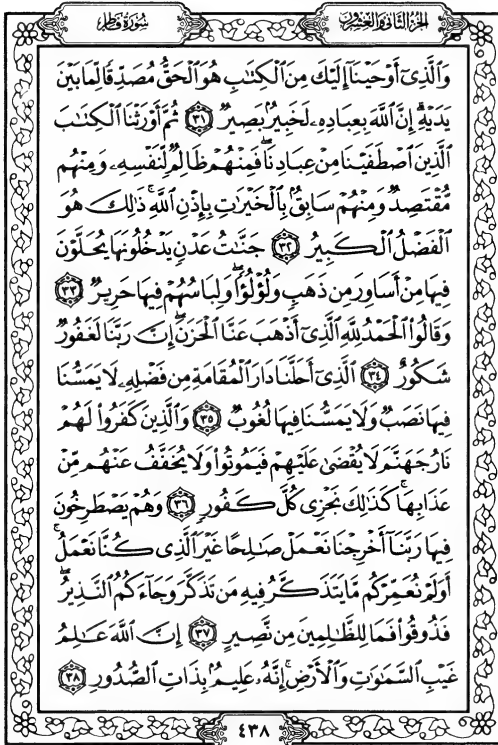 الجزء الثاني والعشرون
سورة فاطر
وَالَّذِىٓ أَوْحَيْنَآ إِلَيْكَ مِنَ ٱلْكِتَٰبِ هُوَ ٱلْحَقُّ مُصَدِّقًا لِّمَا بَيْنَ
يَدَيْهِ ۗ إِنَّ ٱللَّهَ بِعِبَادِهِۦ لَخَبِيرٌۢ بَصِيرٌ ۝٣١ ثُمَّ أَوْرَثْنَا ٱلْكِتَٰبَ
ٱلَّذِينَ ٱصْطَفَيْنَا مِنْ عِبَادِنَا ۖ فَمِنْهُمْ ظَالِمٌ لِّنَفْسِهِۦ وَمِنْهُم
مُّقْتَصِدٌ وَمِنْهُمْ سَابِقٌۢ بِٱلْخَيْرَٰتِ بِإِذْنِ ٱللَّهِ ۚ ذَٰلِكَ هُوَ
ٱلْفَضْلُ ٱلْكَبِيرُ ۝٣٢ جَنَّٰتُ عَدْنٍ يَدْخُلُونَهَا يُحَلَّوْنَ
فِيهَا مِنْ أَسَاوِرَ مِن ذَهَبٍ وَلُؤْلُؤًا ۖ وَلِبَاسُهُمْ فِيهَا حَرِيرٌ ۝٣٣
وَقَالُوا۟ ٱلْحَمْدُ لِلَّهِ ٱلَّذِىٓ أَذْهَبَ عَنَّا ٱلْحَزَنَ ۖ إِنَّ رَبَّنَا لَغَفُورٌ
شَكُورٌ ۝٣٤ ٱلَّذِىٓ أَحَلَّنَا دَارَ ٱلْمُقَامَةِ مِن فَضْلِهِۦ لَا يَمَسُّنَا
فِيهَا نَصَبٌ وَلَا يَمَسُّنَا فِيهَا لُغُوبٌ ۝٣٥ وَٱلَّذِينَ كَفَرُوا۟ لَهُمْ
نَارُ جَهَنَّمَ لَا يُقْضَىٰ عَلَيْهِمْ فَيَمُوتُوا۟ وَلَا يُخَفَّفُ عَنْهُم مِّنْ
عَذَابِهَا ۚ كَذَٰلِكَ نَجْزِى كُلَّ كَفُورٍ ۝٣٦ وَهُمْ يَصْطَرِخُونَ
فِيهَا رَبَّنَآ أَخْرِجْنَا نَعْمَلْ صَٰلِحًا غَيْرَ ٱلَّذِى كُنَّا نَعْمَلُ ۚ
أَوَلَمْ نُعَمِّرْكُم مَّا يَتَذَكَّرُ فِيهِ مَن تَذَكَّرَ وَجَآءَكُمُ ٱلنَّذِيرُ ۖ
فَذُوقُوا۟ فَمَا لِلظَّٰلِمِينَ مِن نَّصِيرٍ ۝٣٧ إِنَّ ٱللَّهَ عَٰلِمُ
غَيْبِ ٱلسَّمَٰوَٰتِ وَٱلْأَرْضِ ۚ إِنَّهُۥ عَلِيمٌۢ بِذَاتِ ٱلصُّدُورِ ۝٣٨
٤٣٨